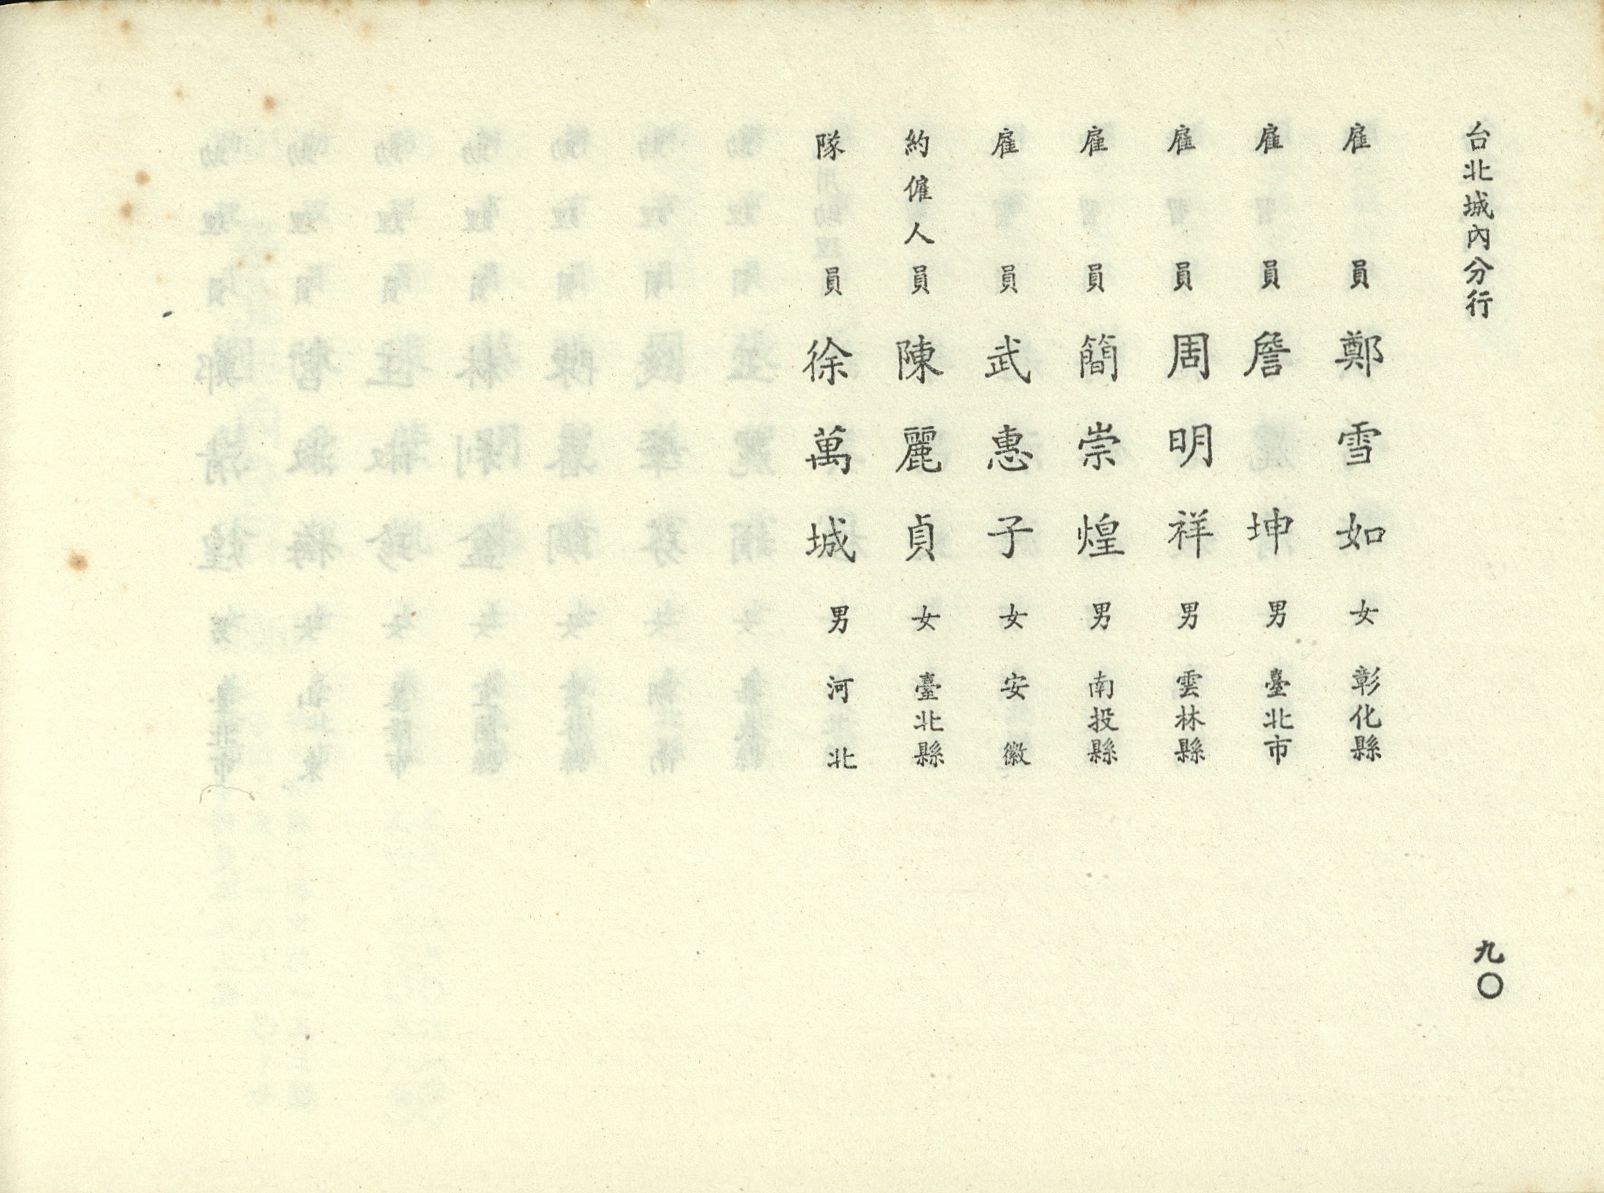 台北城內分行
九〇
雇員 鄭雪如 女 彰化縣
雇員 詹坤 男 臺北市
雇員 周明祥 男 雲林縣
雇員 簡崇煌 男 南投縣
雇員 武惠子 女 安徽
約僱人員 陳麗貞 女 臺北縣
隊員 徐萬城 男 河北